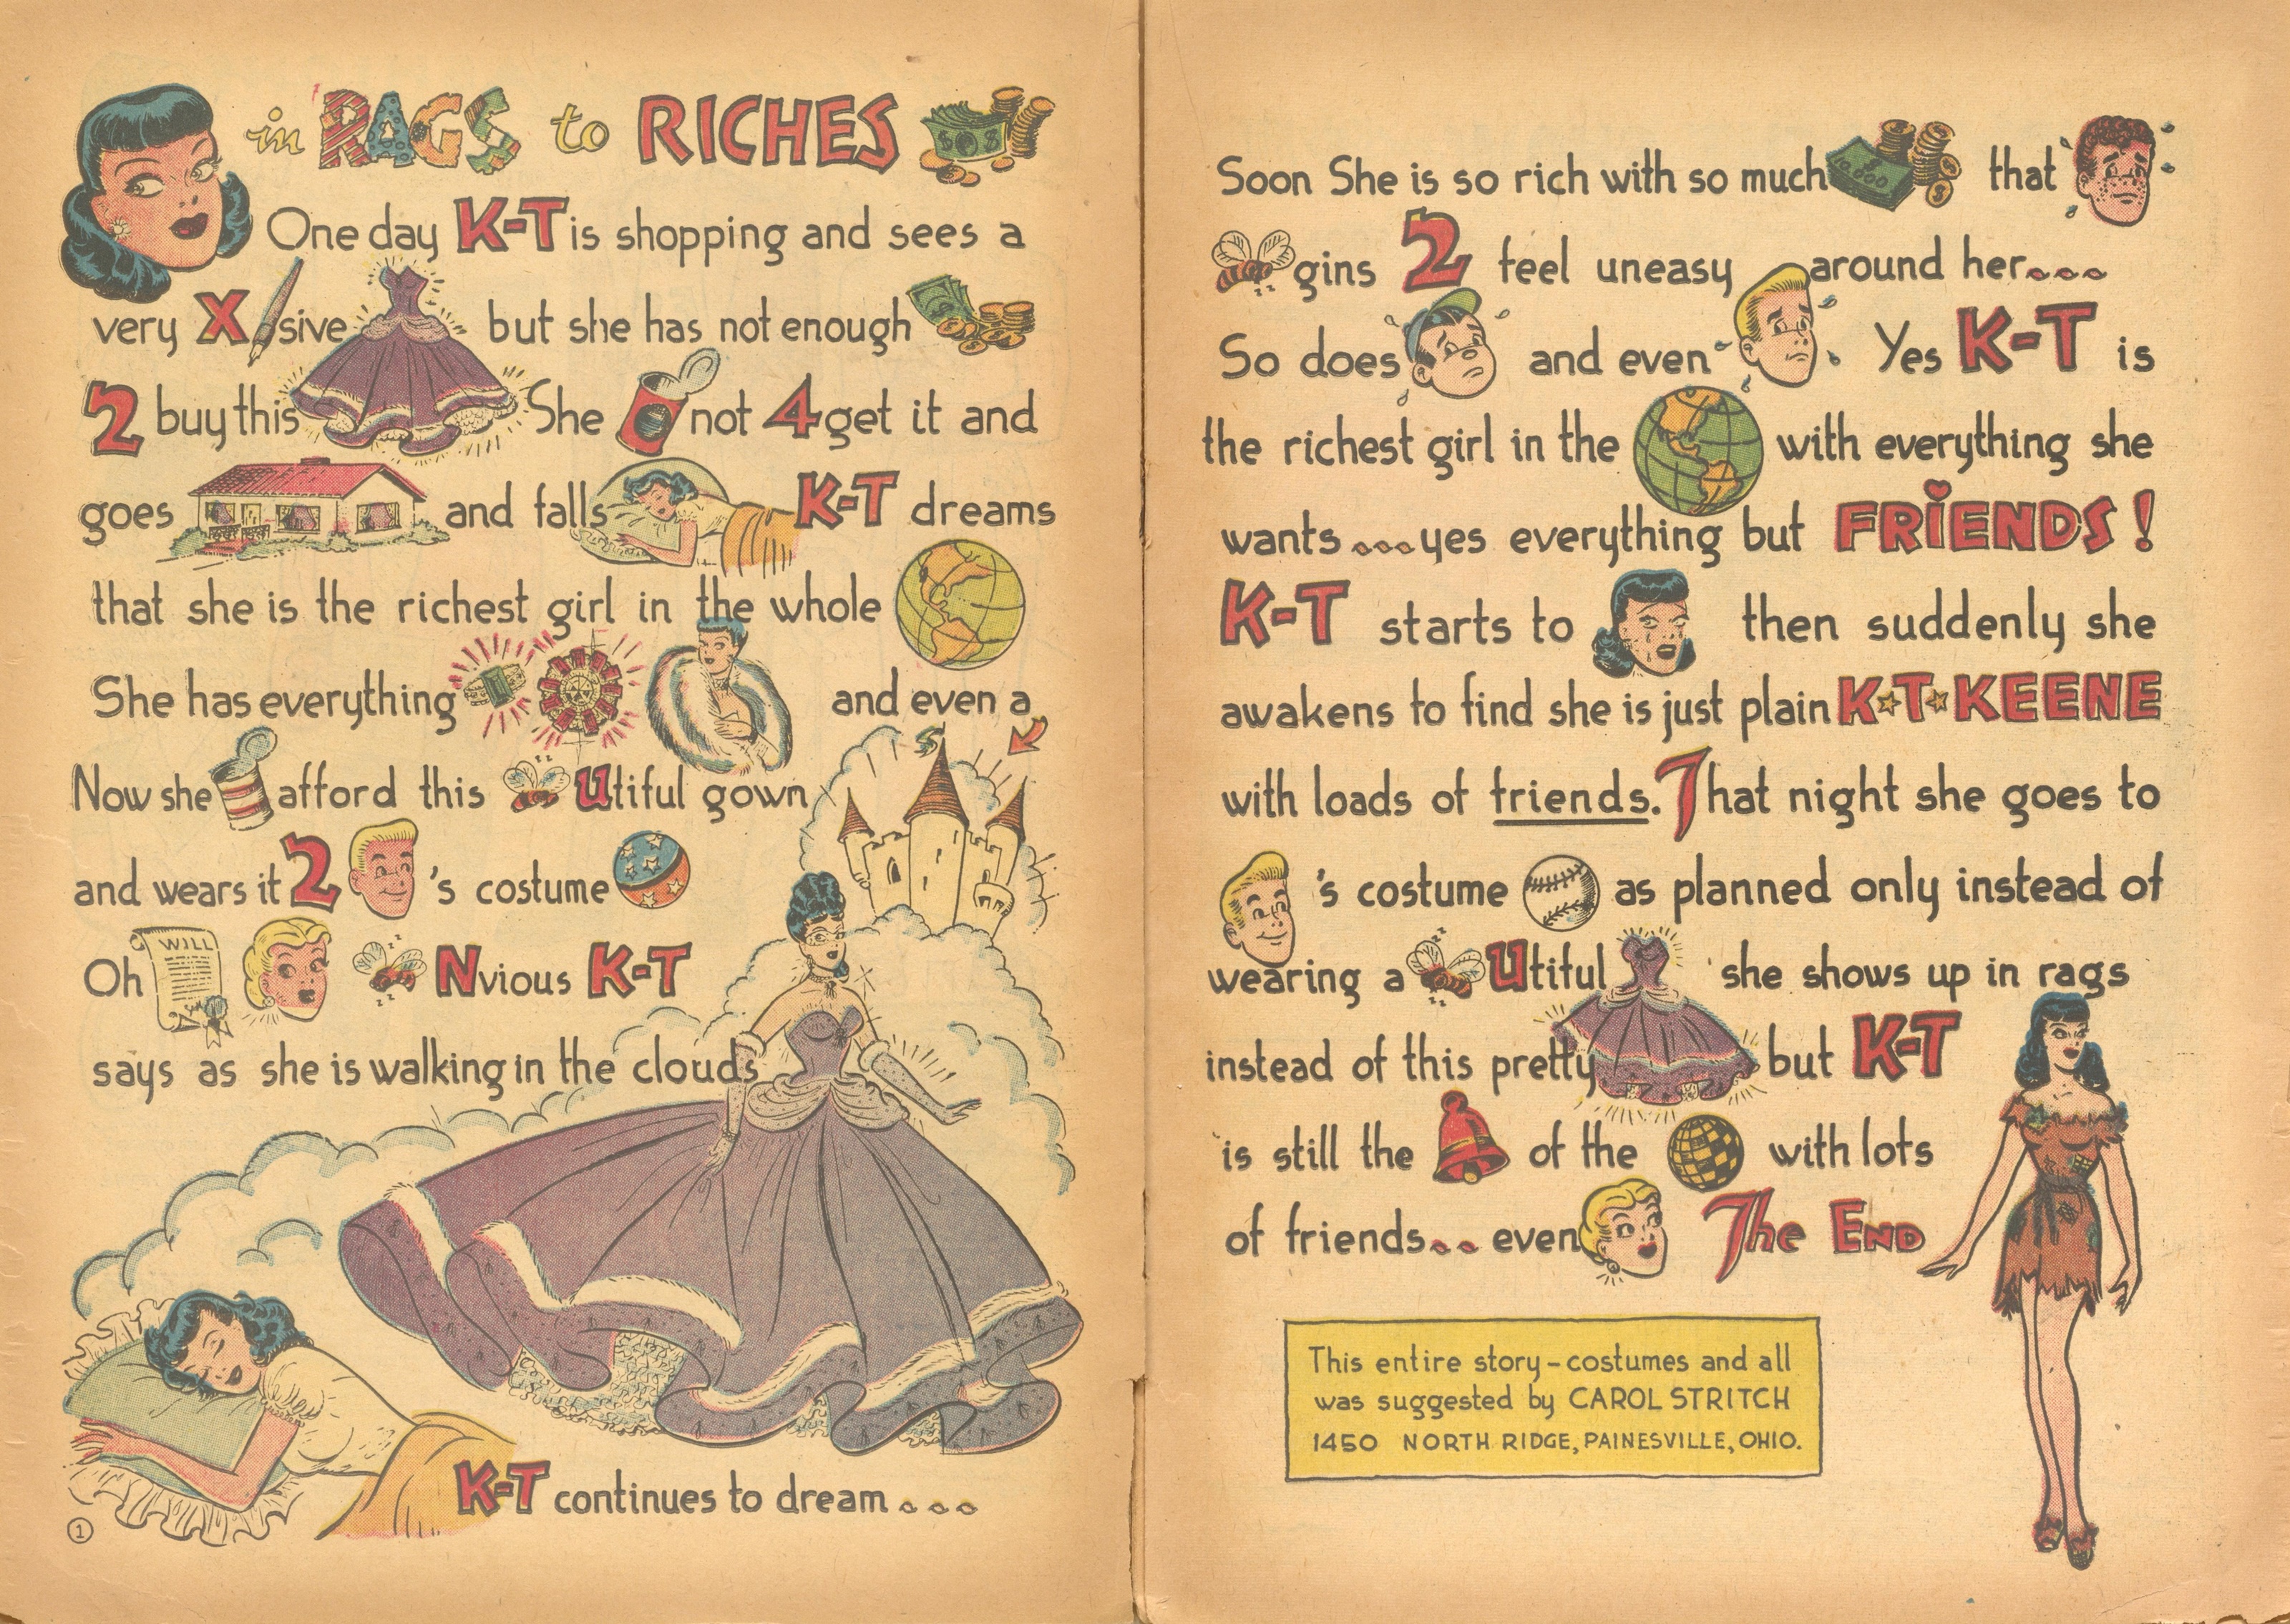 in RAGS to RICHES
One day K-T is shopping and sees a
very X sive but she has not enough
2 buy this She not 4get it and
goes and falls K-T dreams
that she is the richest girl in the whole
She has everything and even a
Now she afford this Utiful gown
and wears it 2 's costume
Oh WILL Nvious K-T
says as she is walking in the clouds
K-T continues to dream...
1
Soon She is so rich with so much 10,000 that
gins 2 feel uneasy around her...
So does and even . Yes K-T is
the richest girl in the with everything she
wants...yes everything but FRIENDS!
K-T starts to then suddenly she
awakens to find she is just plain K★T★KEENE
with loads of friends. That night she goes to
's costume as planned only instead of
wearing a Utiful she shows up in rags
instead of this pretty but K-T
is still the of the with lots
of friends.. even The END
This entire story-costumes and all
was suggested by CAROL STRITCH
1450 NORTH RIDGE, PAINESVILLE, OHIO.